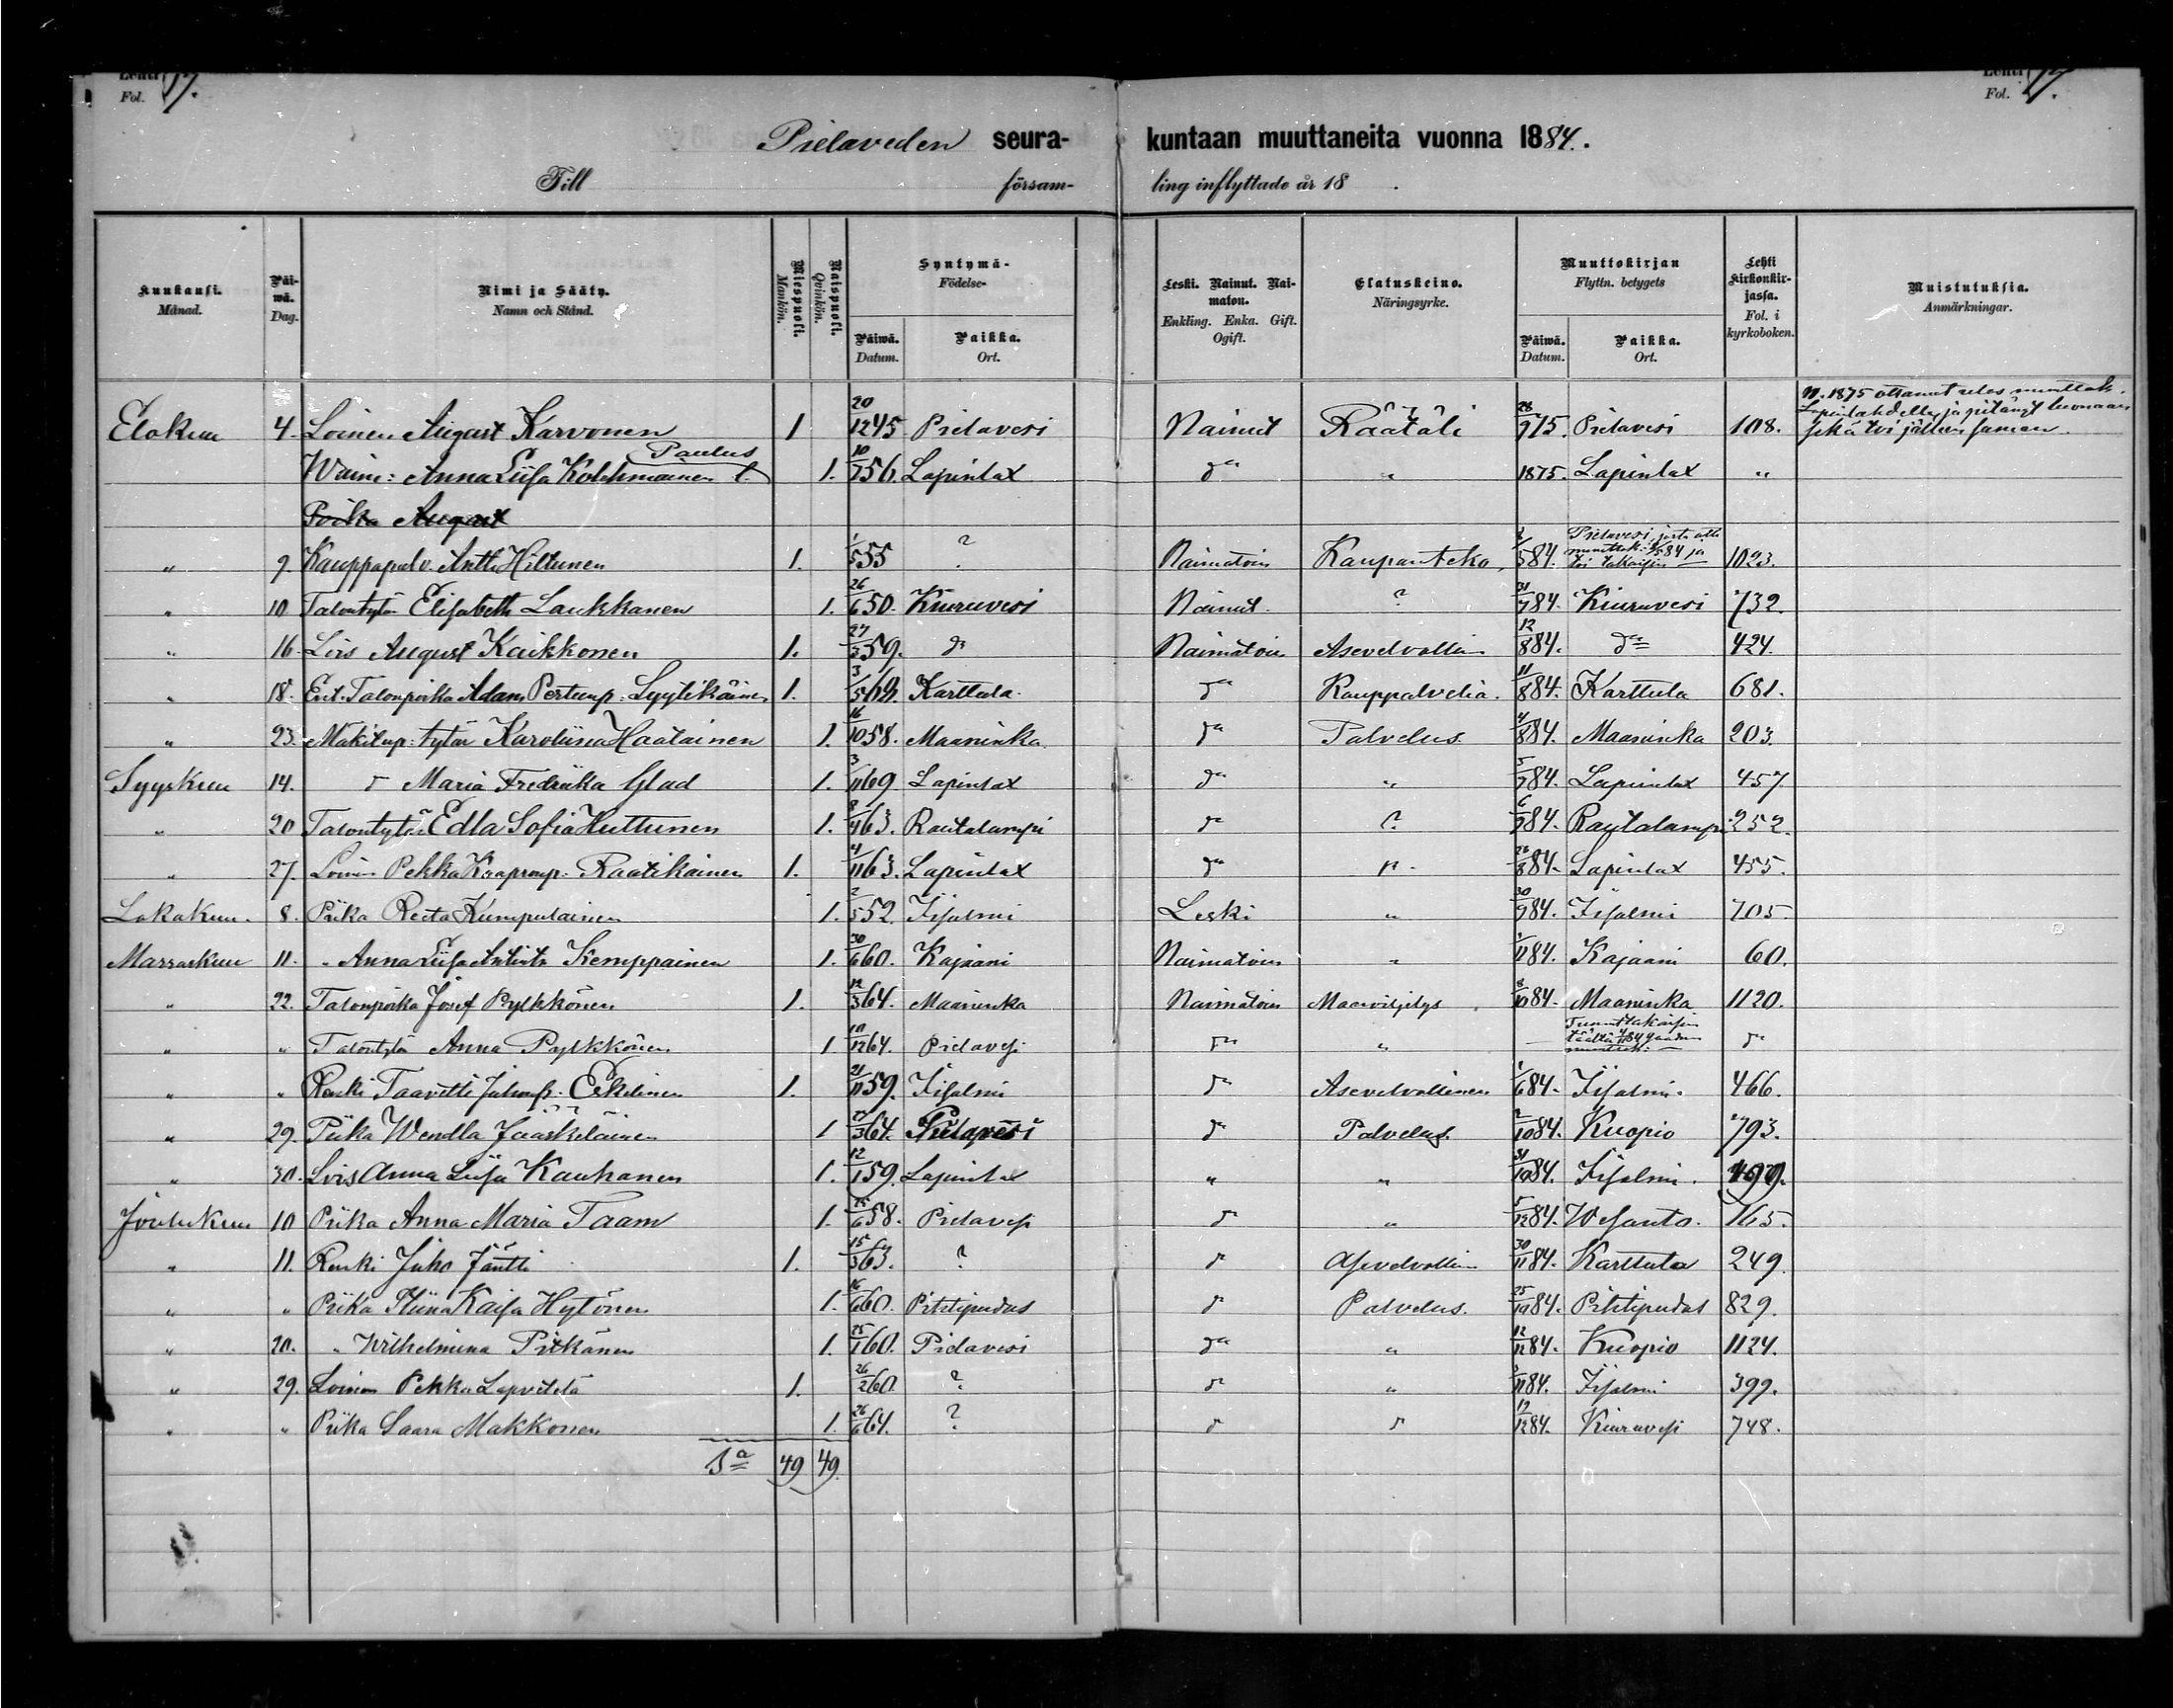 Lehti 17.
Fol.
Lehti 17.
Fol.
Pielaveden seura- kuntaan muuttaneita vuonna 1884.
Till försam- ling inflyttade år 18 .
Kuukausi. Månad. Päi-wä. Dag. Nimi ja Sääty. Namn och Stånd. Miespuoli. Mankön. Naispuoli. Qvinkön. Syntymä- Födelse- Päiwä. Datum. Paikka. Ort. Leski. Nainut. Nai-maton. Enkling. Enka. Gift. Ogift. Elatuskeino. Näringsyrke. Muuttokirjan Flyttn. betygets Päiwä. Datum. Paikka. Ort. Lehti Kirkonkir-jassa. Fol. i kyrkoboken. Muistutuksia. Anmärkningar.
Elokuu 4. Loinen August Karvonen 1 20/12 45 Pielavesi Nainut Räätäli 28/9 75. Pielavesi 108. W. 1875 ottanut ulos muuttok. Lapinlahdelle, ja pitänyt luonaan sekä toi jälleen saman.
Waim: Anna Liisa Kolehmainen Paulus t. 1. 10/7 56. Lapinlax d:o " 1875. Lapinlax "
Poika August
" 9. Kauppapalv. Antti Hiltunen 1. 1/5 55 ? Naimatoin Kaupanteko, /5 84. Pielavesi, josta otti muuttok. /5 84 ja toi takaisin 1023.
" 10 Talontytär Elisabeth Laukkanen 1. 26/6 50. Kiuruvesi Nainut. ? 31/7 84. Kiuruvesi 732.
" 16. Lois August Kaikkonen 1. 27/3 59. d:o Naimatoin Asevelvollin 12/8 84. d:o 424.
" 18. Ent. Talonpoika Adam Pertunp. Lyytikäinen 1. 3/5 62. Karttula. d:o Kauppalvelia. 11/8 84. Karttula 681.
" 23. Mäkitup: tytär Karoliina Haatainen 1. 16/10 58. Maaninka. d:o Palvelus. 4/8 84. Maaninka 203.
Syyskuu 14. d:o Maria Fredriika Glad 1. 3/11 69. Lapinlax d:o " 5/7 84. Lapinlax 457
" 20 Talontytär Edla Sofia Huttunen 1. 8/4 63. Rautalampi d:o ? 6/9 84. Rautalampi 252.
" 27. Loinen Pekka Kaapronp. Raatikainen 1. 4/11 63. Lapinlax d:o " 26/8 84. Lapinlax 455.
Lokakuu. 8. Piika Reeta Kumpulainen 1. 2/5 52. Iisalmi Leski " 30/9 84. Iisalmi 705.
Marraskuu 11. " Anna Liisa Antint:r Kemppainen 1. 30/6 60. Kajaani Naimatoin " 1/11 84. Kajaani 60.
" 22. Talonpoika Josef Pylkkönen 1. 12/3 64. Maaninka Naimatoin Maanviljelys 8/10 84. Maaninka 1120.
" " Talontytär Anna Pylkkönen 1 10/12 64. Pielavesi d:o " — d:o
" " Renki Taavetti Juhonp. Eskelinen 1. 21/11 59. Iisalmi d:o Asevelvollinen 1/6 84. Iisalmi. 466.
" 29. Piika Wendla Jääskeläinen 1 /3 64. Pielavesi d:o Palvelus. 2/10 84. Kuopio 793.
" 30. Lois Anna Liisa Kauhanen 1. 12/1 59. Lapinlax " " 31/10 84. Iisalmi. 199.
Joulukuu 10 Piika Anna Maria Taam 1. 25/6 58. Pielavesi d:o " 5/12 84. Wesanto. 165.
" 11. Renki Juho Jäntti 1. 15/3 63. ? d:o Asevelvollin 30/11 84. Karttula 249.
" " Piika Stiina Kaisa Hytönen 1. 16/6 60. Pihtipudas d:o Palvelus. 25/10 84. Pihtipudas 829.
" 20. " Wilhelmina Pitkänen 1. 25/1 60. Pielavesi d:o " 12/12 84. Kuopio 1124.
" 29. Loinen Pekka Lapvetelä 1. 26/2 60. ? d:o " 3/11 84. Iisalmi 399.
" " Piika Saara Makkonen 1. 26/6 64. ? d:o d:o 19/12 84. Kiuruvesi 748.
S:a 49 49.